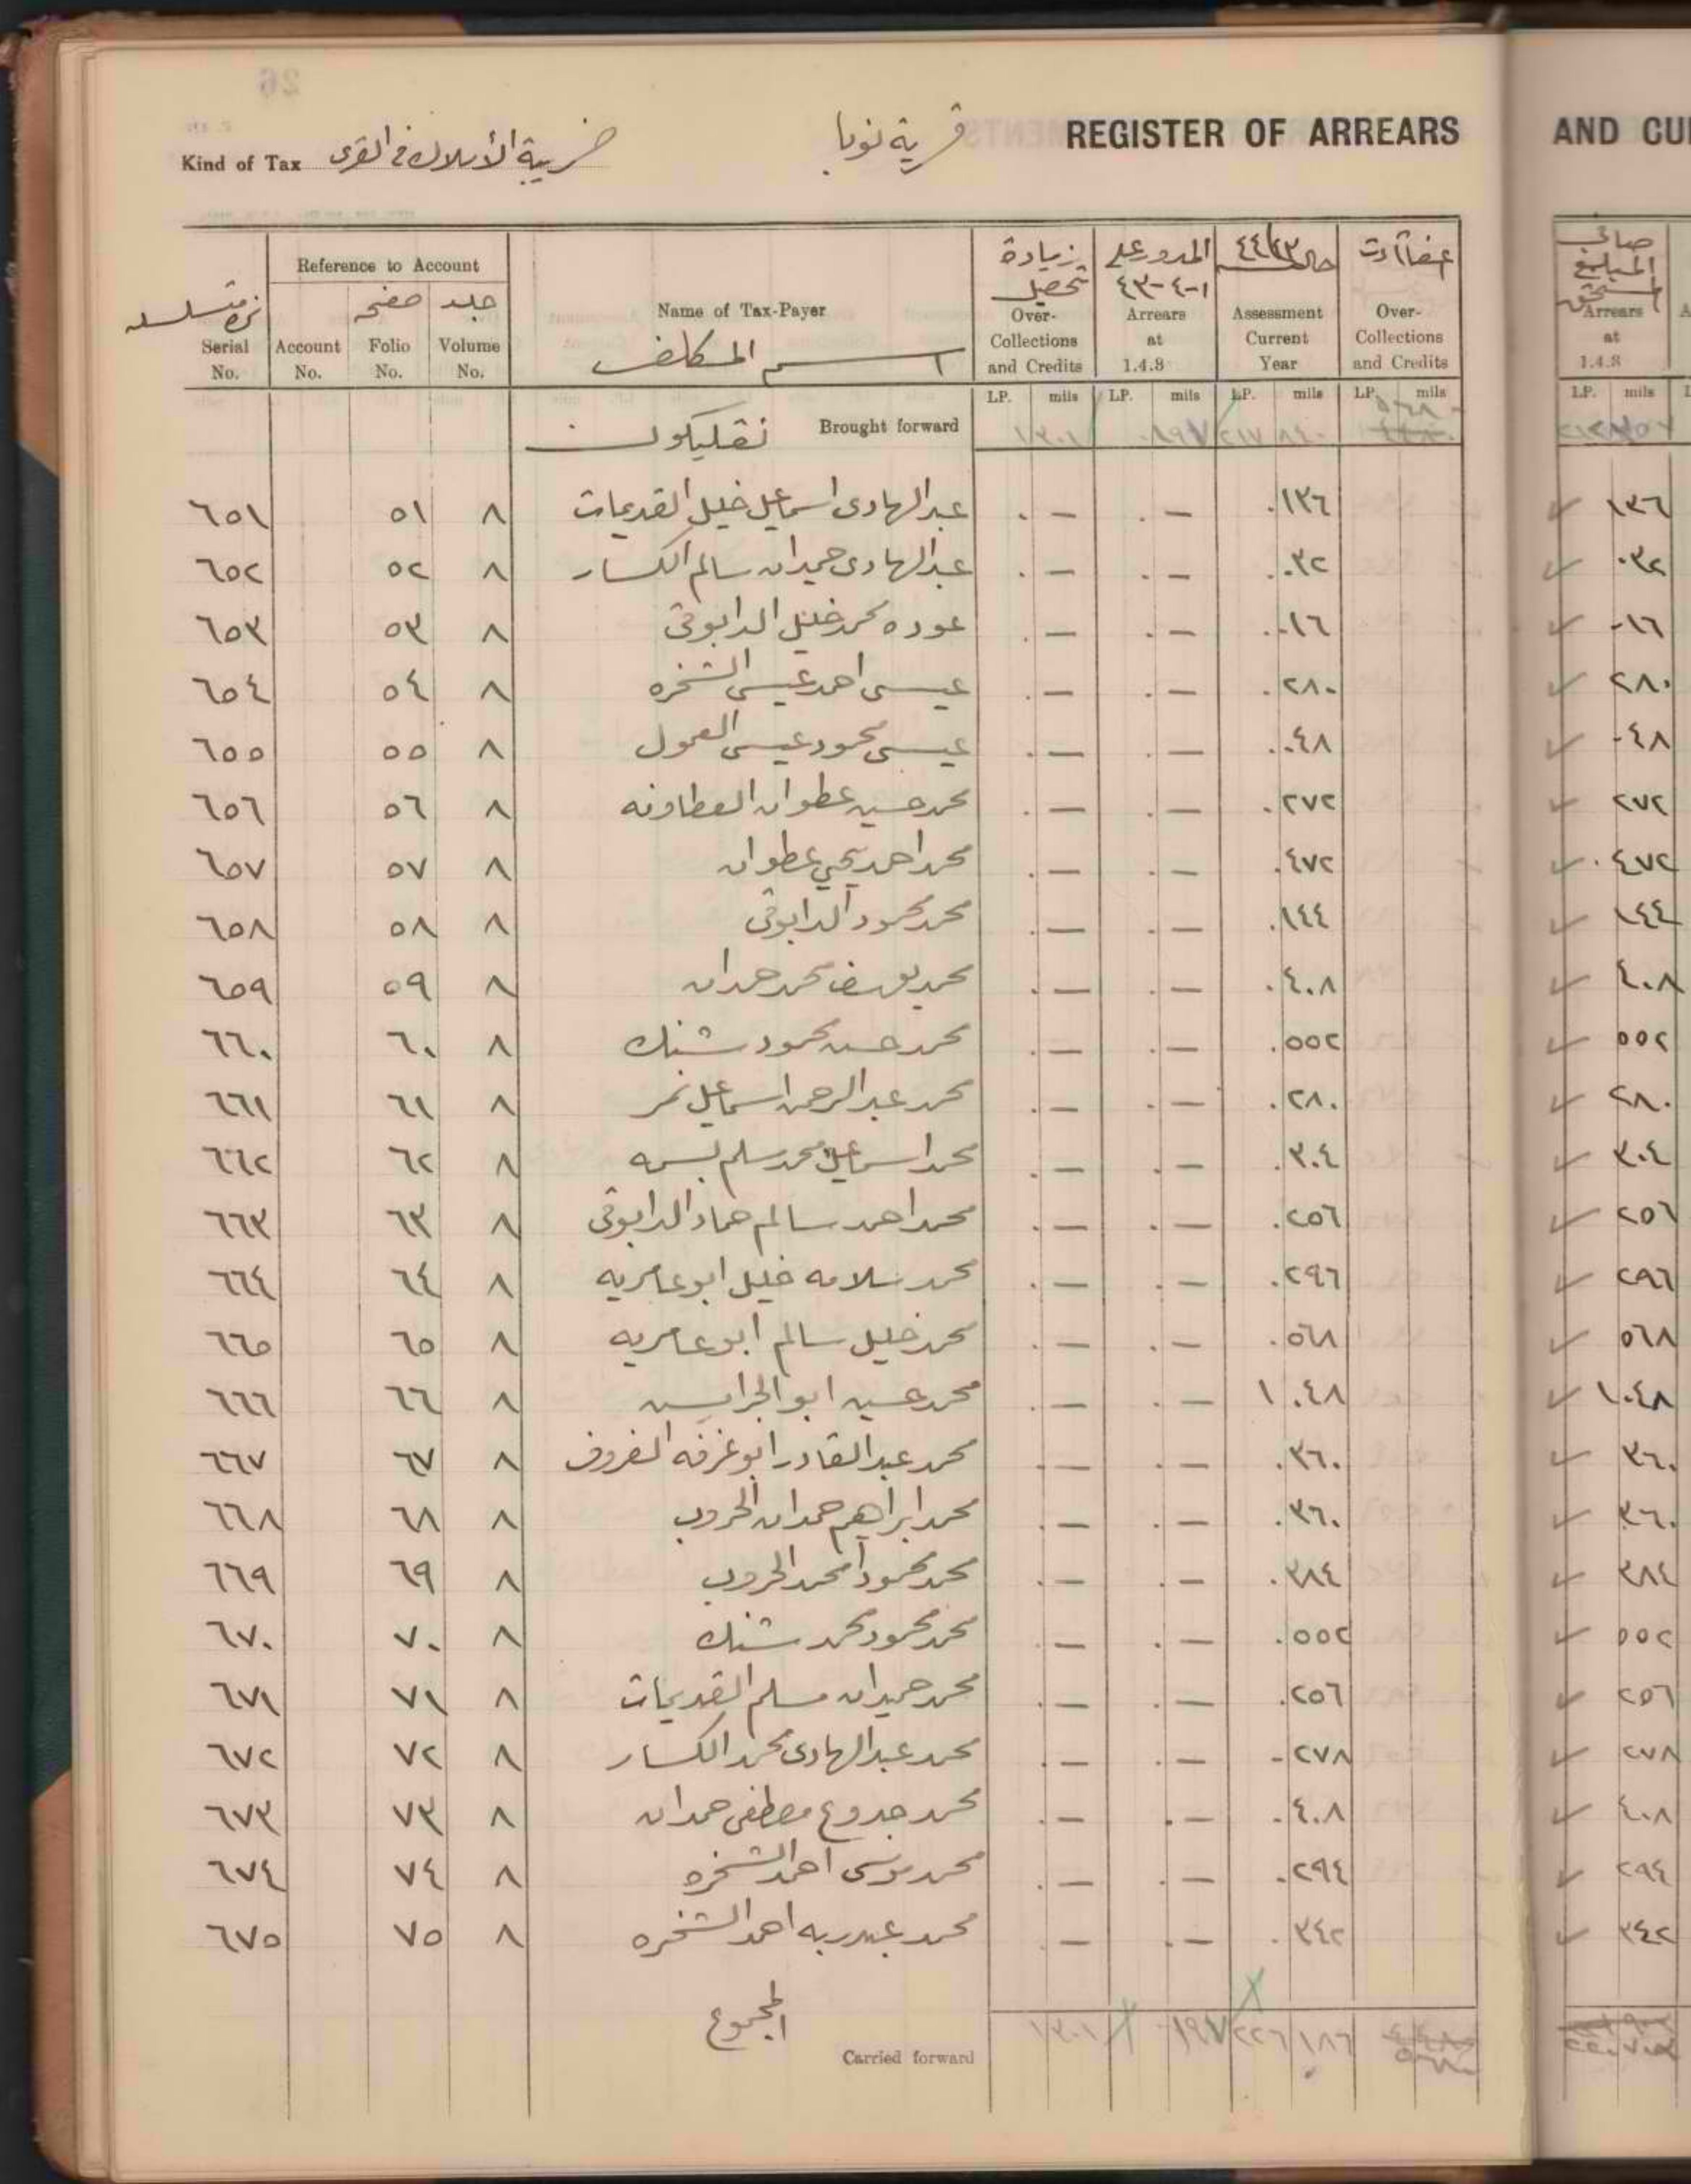 REGISTER OF ARREARS
AND CU
قرية نوبا
Kind of Tax ضريبة الأملاك في القرى
Reference to Account
Serial No.
Account No.
صفحه Folio No.
جلد Volume No.
Name of Tax-Payer
اسم المكلف
زيادة تحصيل Over-Collections and Credits
المدور على ١-٤-٤٣ Arrears at 1.4.8
٤٤/٤٣ Assessment Current Year
Over-Collections and Credits
صافي المبلغ المستحق Arrears at 1.4.8
LP. mils LP. mils LP. mils LP. mils LP. mils
Brought forward ١٣٠١ ٨٩٧ ٢١٧ ٨٤٠
٦٥١ ٥١ ٨ عبد الهادى اسماعيل خليل القديمات . — . — .١٣٦ ١٣٦
٦٥٢ ٥٢ ٨ عبد الهادى حميدان سالم الكسار . — . — .٠٣٢ ٠٣٢
٦٥٣ ٥٣ ٨ عوده محمد خليل الدابوقى . — . — .٠١٦ ٠١٦
٦٥٤ ٥٤ ٨ عيسى احمد عيسى الشخره . — . — .٢٨٠ ٢٨٠
٦٥٥ ٥٥ ٨ عيسى محمود عيسى . — . — .٠٤٨ ٠٤٨
٦٥٦ ٥٦ ٨ محمد حسين عطوان العطاونه . — . — .٢٧٢ ٢٧٢
٦٥٧ ٥٧ ٨ محمد احمد يحيى عطوان . — . — .٤٧٢ .٤٧٢
٦٥٨ ٥٨ ٨ محمد محمود الدابوقى . — . — .١٤٤ ١٤٤
٦٥٩ ٥٩ ٨ محمد يوسف محمد حمدان . — . — .٤٠٨ ٤٠٨
٦٦٠ ٦٠ ٨ محمد حسن محمود شنك . — . — .٥٥٢ ٥٥٢
٦٦١ ٦١ ٨ محمد عبد الرحمن اسماعيل نمر . — . — .٢٨٠ ٢٨٠
٦٦٢ ٦٢ ٨ محمد اسماعيل محمد سلم بسمه . — . — .٣٠٤ ٣٠٤
٦٦٣ ٦٣ ٨ محمد احمد سالم حماد الدابوقى . — . — .٢٥٦ ٢٥٦
٦٦٤ ٦٤ ٨ محمد سلامه خليل ابو عامريه . — . — .٢٩٦ ٢٩٦
٦٦٥ ٦٥ ٨ محمد خليل سالم ابو عامريه . — . — .٥٦٨ ٥٦٨
٦٦٦ ٦٦ ٨ محمد ابو . — . — ١ ٠٤٨ ١٠٤٨
٦٦٧ ٦٧ ٨ محمد عبد القادر ابو غرفه الفروف . — . — .٣٦٠ ٣٦٠
٦٦٨ ٦٨ ٨ محمد ابراهيم حمدان الحروب . — . — .٣٦٠ ٣٦٠
٦٦٩ ٦٩ ٨ محمد محمود امحمد الحروب . — . — .٣٨٤ ٣٨٤
٦٧٠ ٧٠ ٨ محمد محمود محمد شنك . — . — .٥٥٢ ٥٥٢
٦٧١ ٧١ ٨ محمد حميدان مسلم القديمات . — . — .٢٥٦ ٢٥٦
٦٧٢ ٧٢ ٨ محمد عبد الهادى محمد الكسار . — . — -٢٧٨ ٢٧٨
٦٧٣ ٧٣ ٨ محمد جدوع مصطفى حمدان . — . — .٤٠٨ ٤٠٨
٦٧٤ ٧٤ ٨ محمد موسى احمد الشخره . — . — .٢٩٤ ٢٩٤
٦٧٥ ٧٥ ٨ محمد عبدربه احمد الشخره . — . — .٣٤٢ ٣٤٢
المجموع
Carried forward ١٣٠١ ٢٢٦ ١٨٦